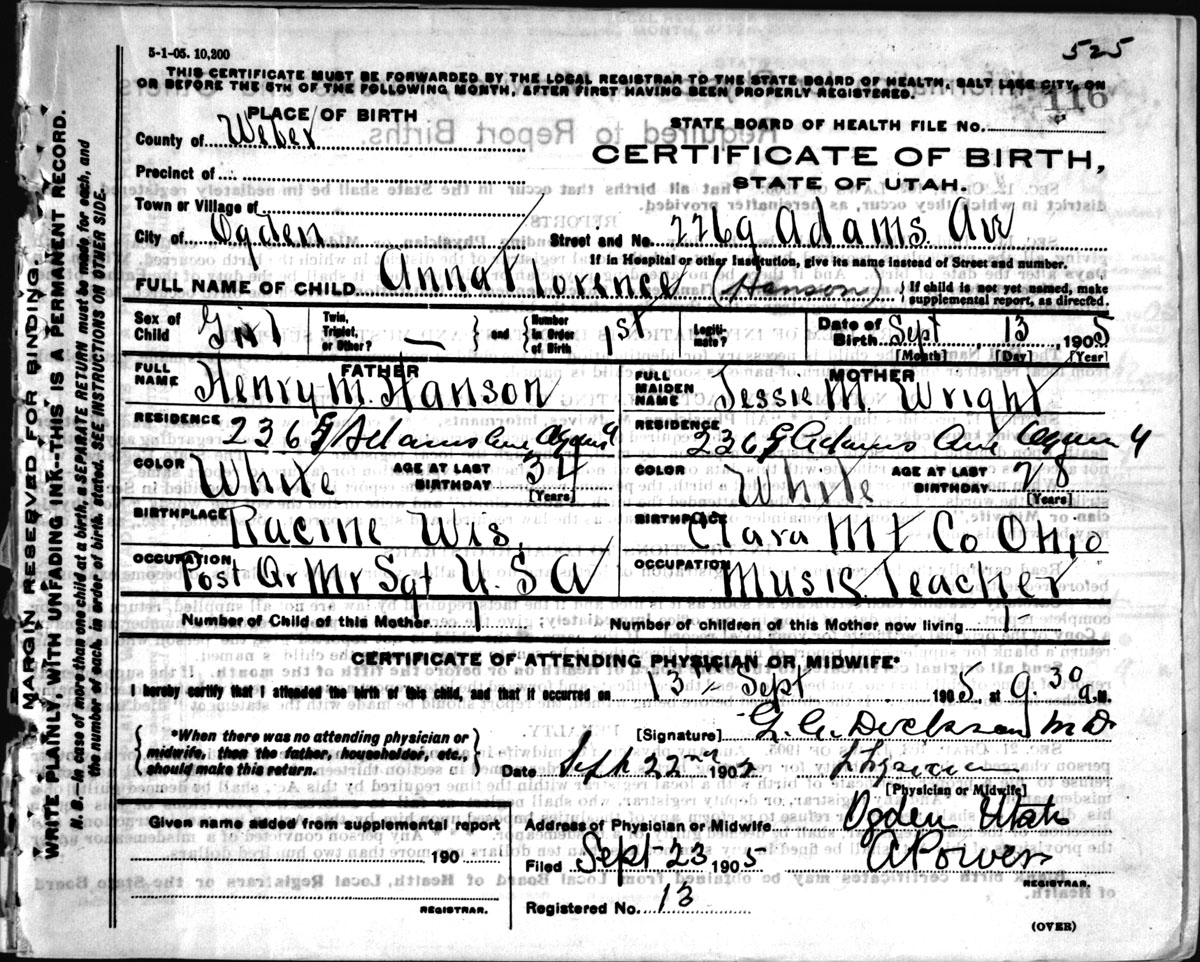 5-1-05. 10,200
525
THIS CERTIFICATE MUST BE FORWARDED BY THE LOCAL REGISTRAR TO THE STATE BOARD OF HEALTH, SALT LAKE CITY, ON
OR BEFORE THE 5TH OF THE FOLLOWING MONTH, AFTER FIRST HAVING BEEN PROPERLY REGISTERED.
116
PLACE OF BIRTH
STATE BOARD OF HEALTH FILE NO.
County of Weber
CERTIFICATE OF BIRTH,
STATE OF UTAH.
Precinct of
Town or Village of
City of Ogden Street and No. 2269 Adams Av
If in Hospital or other Institution, give its name instead of Street and number.
FULL NAME OF CHILD Anna Florence (Hanson) If child is not yet named, make
supplemental report, as directed.
Sex of Child Girl
Twin, Triplet, or Other? —
and Number in Order of Birth 1st
Legiti-mate?
Date of Birth Sept 13 1905
[Month] [Day] [Year]
FATHER
FULL NAME Henry M. Hanson
MOTHER
FULL MAIDEN NAME Jessie M. Wright
RESIDENCE Adams Ave
RESIDENCE Adams Ave
COLOR White AGE AT LAST BIRTHDAY 34 [Years]
COLOR White AGE AT LAST BIRTHDAY 28 [Years]
BIRTHPLACE Racine Wis.
BIRTHPLACE Clara Mt Co Ohio
OCCUPATION Post Qr Mr Sgt U. S A
OCCUPATION Music Teacher
Number of Child of this Mother 1
Number of children of this Mother now living 1
CERTIFICATE OF ATTENDING PHYSICIAN OR MIDWIFE*
I hereby certify that I attended the birth of this child, and that it occurred on 13 Sept 1905, at 9.30 a.M.
*When there was no attending physician or
midwife, then the father, householder, etc.,
should make this return.
[Signature] Dickson M D
Date Sept 22nd 190 Physician
[Physician or Midwife]
Given name added from supplemental report
190
REGISTRAR.
Address of Physician or Midwife Ogden Utah
Filed Sept 23 1905 A Powers
REGISTRAR.
Registered No. 13
(OVER)
MARGIN RESERVED FOR BINDING.
WRITE PLAINLY WITH UNFADING INK--THIS IS A PERMANENT RECORD.
N. B.--In case of more than one child at a birth, a SEPARATE RETURN must be made for each, and
the number of each, in order of birth, stated. SEE INSTRUCTIONS ON OTHER SIDE.